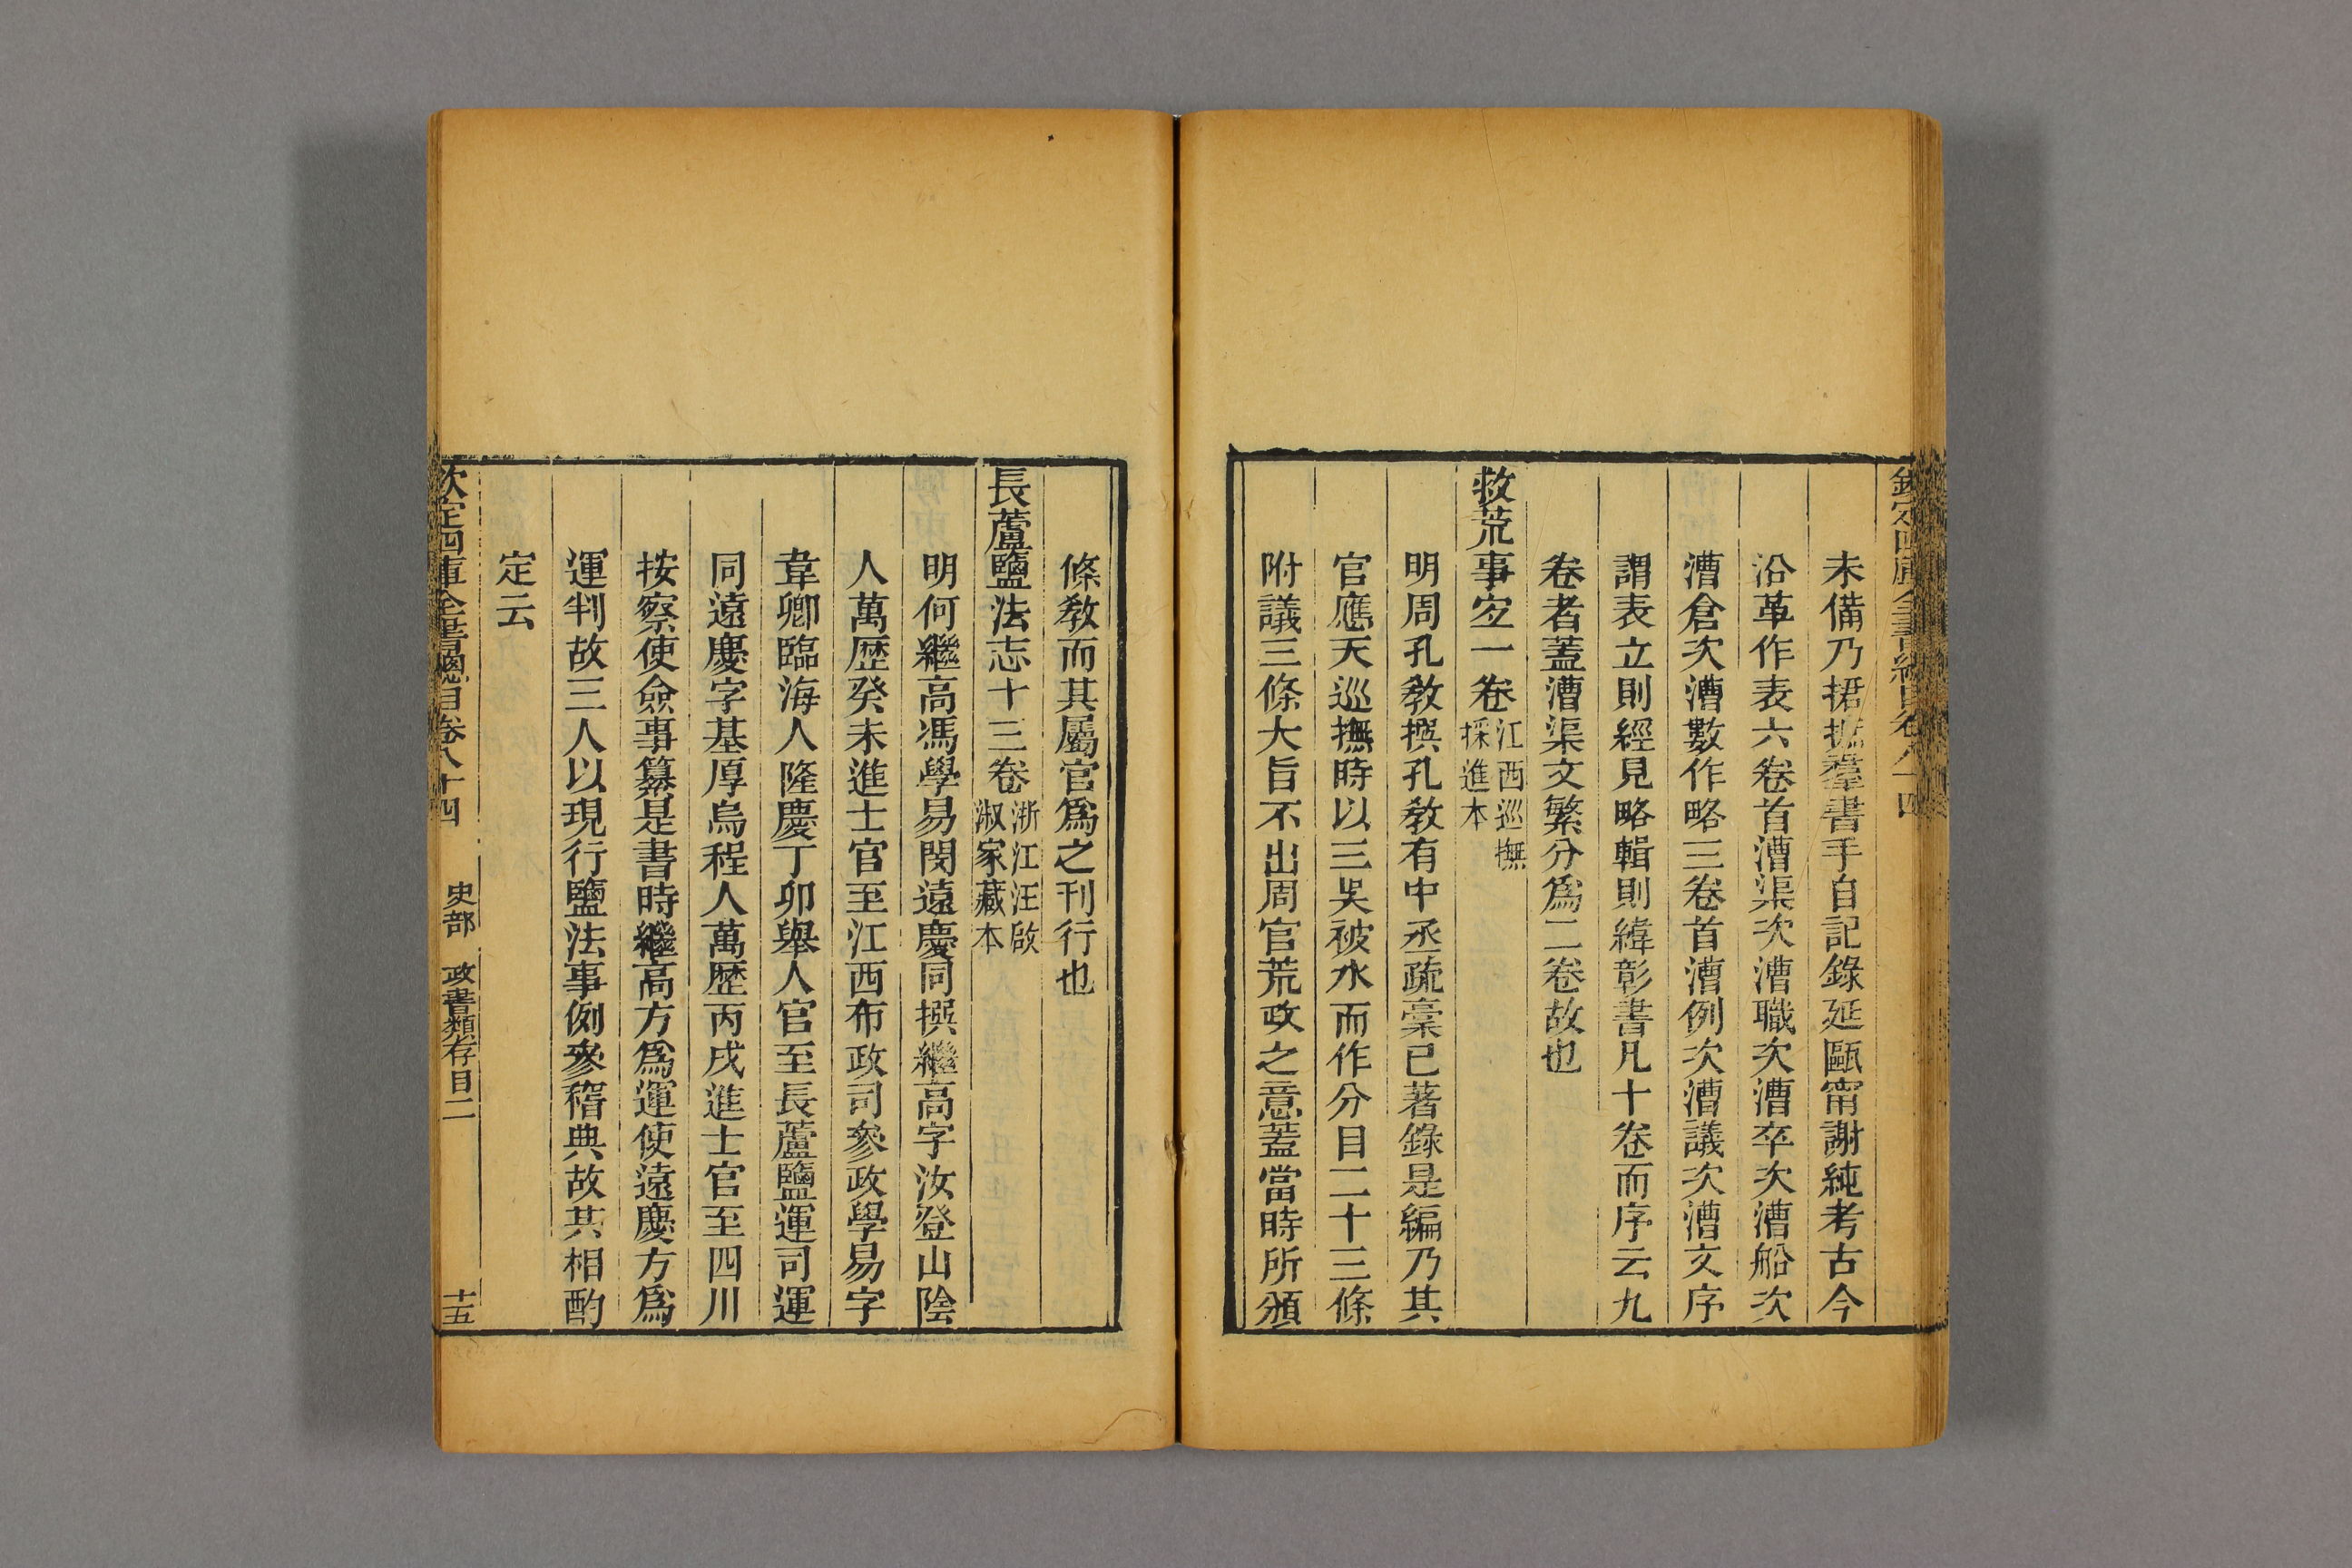 欽定四庫全書總目卷八十四
未備乃捃摭羣書手自記錄延甌甯謝純考古今
沿革作表六卷首漕渠次漕職次漕卒次漕船次
漕倉次漕數作略三卷首漕例次漕議次漕文序
謂表立則經見略輯則緯彰書凡十卷而序云九
卷者蓋漕渠文繁分爲二卷故也
救荒事宐一卷江西巡撫採進本
明周孔敎撰孔敎有中丞疏稾已著錄是編乃其
官應天巡撫時以三吳被水而作分目二十三條
附議三條大旨不出周官荒政之意蓋當時所頒
條敎而其屬官爲之刊行也
長蘆鹽法志十三卷浙江汪啟淑家藏本
明何繼高馮學易閔遠慶同撰繼高字汝登山陰
人萬歷癸未進士官至江西布政司參政學易字
韋卿臨海人隆慶丁卯舉人官至長蘆鹽運司運
同遠慶字基厚烏程人萬歷丙戌進士官至四川
按察使僉事纂是書時繼高方爲運使遠慶方爲
運判故三人以現行鹽法事例參稽典故共相酌
定云
欽定四庫全書總目卷八十四 史部 政書類存目二 十五